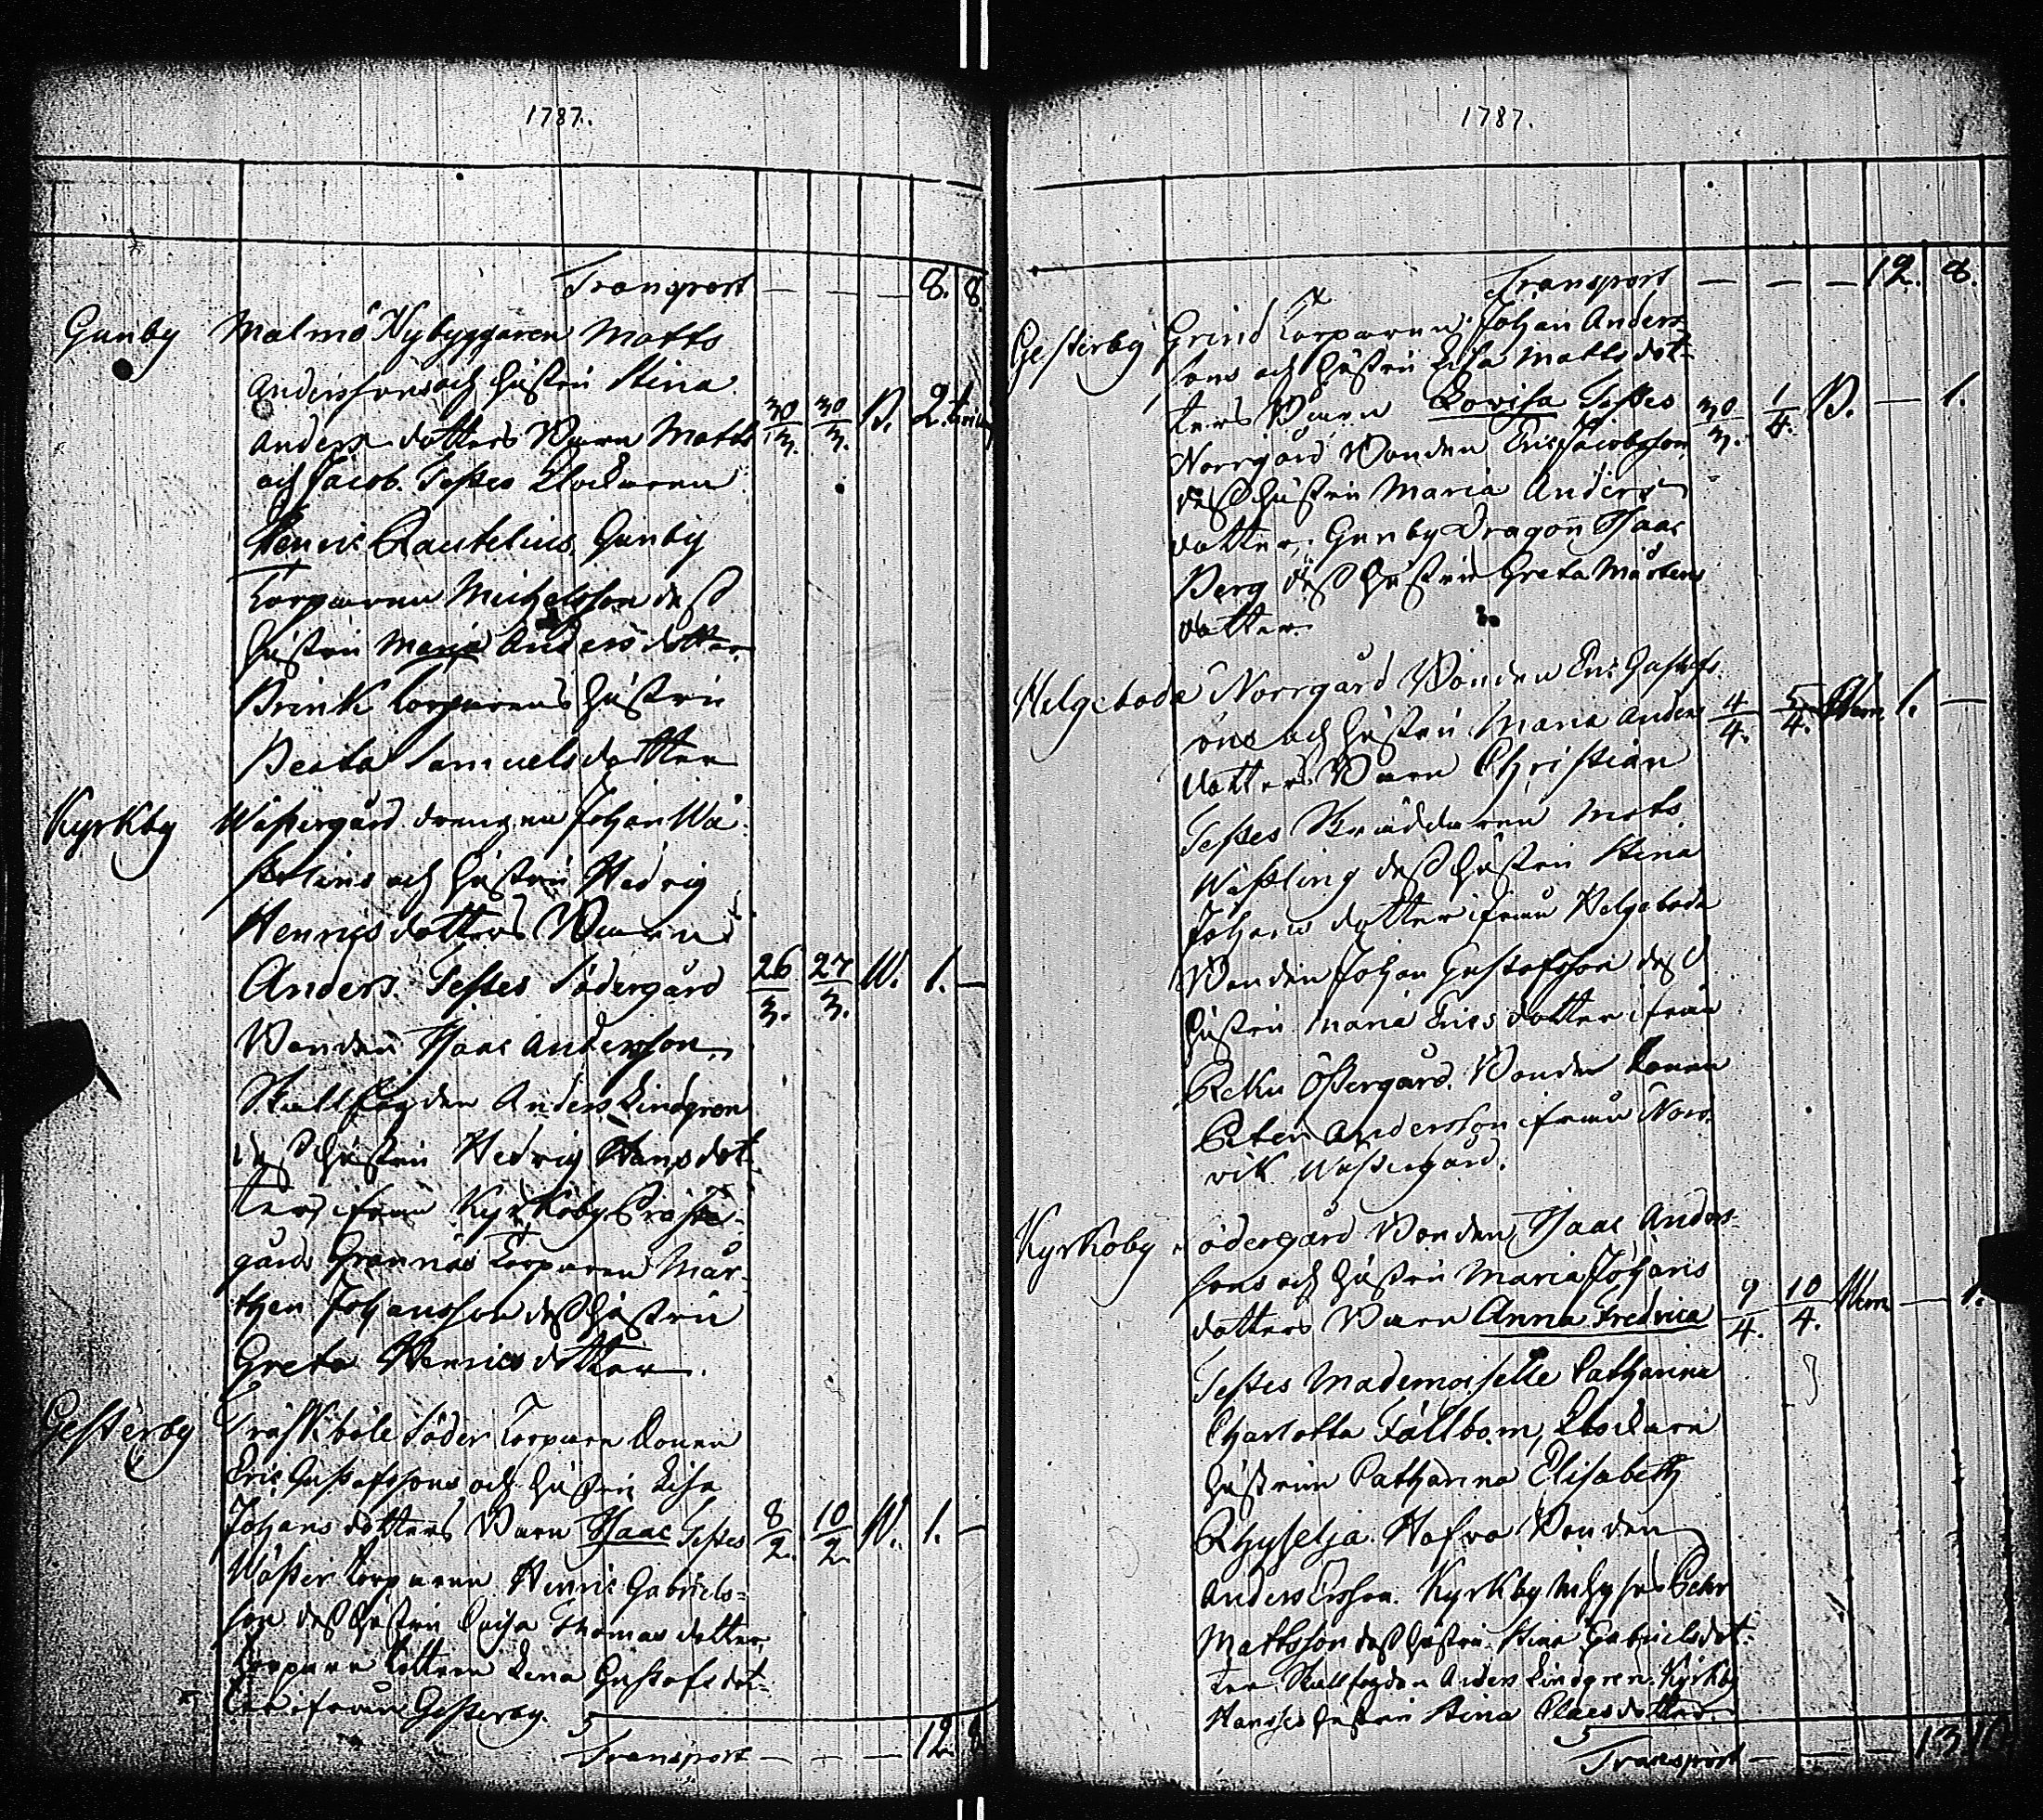 1787.
Transport — — — 8. 8.
Gunby Malmö Nybyggaren Matts
Anderssons och hustru Stina
Anders dotters Barn Matts 30/3. 30/3. B. 2.
och Jacob. Testes Klockaren
Henric Rautelius, Gunby
Torparen Michelsson dess
hustru Maria Anders dotter
Brink Torparens hustru
Beata Samuelsdotter
Kyrkby Wästergård drengen Johan Wä-
sterlins och hustru Hedvig
Henricsdotters Barn
Anders. Testes Södergård 26/3. 27/3. W. 1. —
Bonden Isaac Andersson
Skallfogden Anders Lindgren
dess hustru Hedvig Hansdot-
ter, ifrån Kyrkoby Präste-
gårds Grännäs Torparen Mår-
then Johansson dess hustru
Greta Henricsdotter.
Gesterby Träskböle Söder Torpare Sonen
Eric Gustafssons och hustru Lisa
Johans dotters Barn Isaac Testes 8/2. 10/2. W. 1. —
Wäster Torparen Henric Gabriels-
son dess hustru Caisa Thomas dotter
Torpare dottren Lena Gustafs dot-
ter ifrån Gesterby.
Transport — — — 12. 8
1787.
Transport — — — 12. 8.
Gesterby Grind Torparen Johan Anders-
sons och hustru Lisa Mattsdot-
ters Barn Lovisa Testes 30/3. 1/4. B. — 1.
Norrgård Bonden Eric Jacobsson
dess hustru Maria Anders
dotter, Gunby Dragon Isaac
Berg dess hustru Greta Mårtens
dotter.
Helgeboda Norrgård Bonden Eric Gustafs-
ons och hustru Maria Anders 4/4. 5/4. 1. —
dotters Barn Christian
Testes Skräddaren Mats
Wästling dess hustru Stina
Johans dotter ifrån Helgeboda
Bonden Johan Gustafsson dess
hustru Maria Erics dotter ifrån
Östergård. Bonde Sonen
Peter Andersson ifrån Norr-
vik Wästergård.
Kyrkoby Södergård Bonden Isaac Anders-
sons och hustru Maria Johans
dotters Barn Anna Fredrica 9/4. 10/4. — 1.
Testes Mademoiselle Catharina
Charlotta Fällbom, Klockare
hustrun Catharina Elisabeth
Bonden
Anders Ersson. Kyrkby Pehr
Mattsson dess hustru Stina Gabrielsdot-
ter Skallfogden Anders Lindgren. Kyrkby
hustru Stina Claesdotter.
Transport — — — 13 10